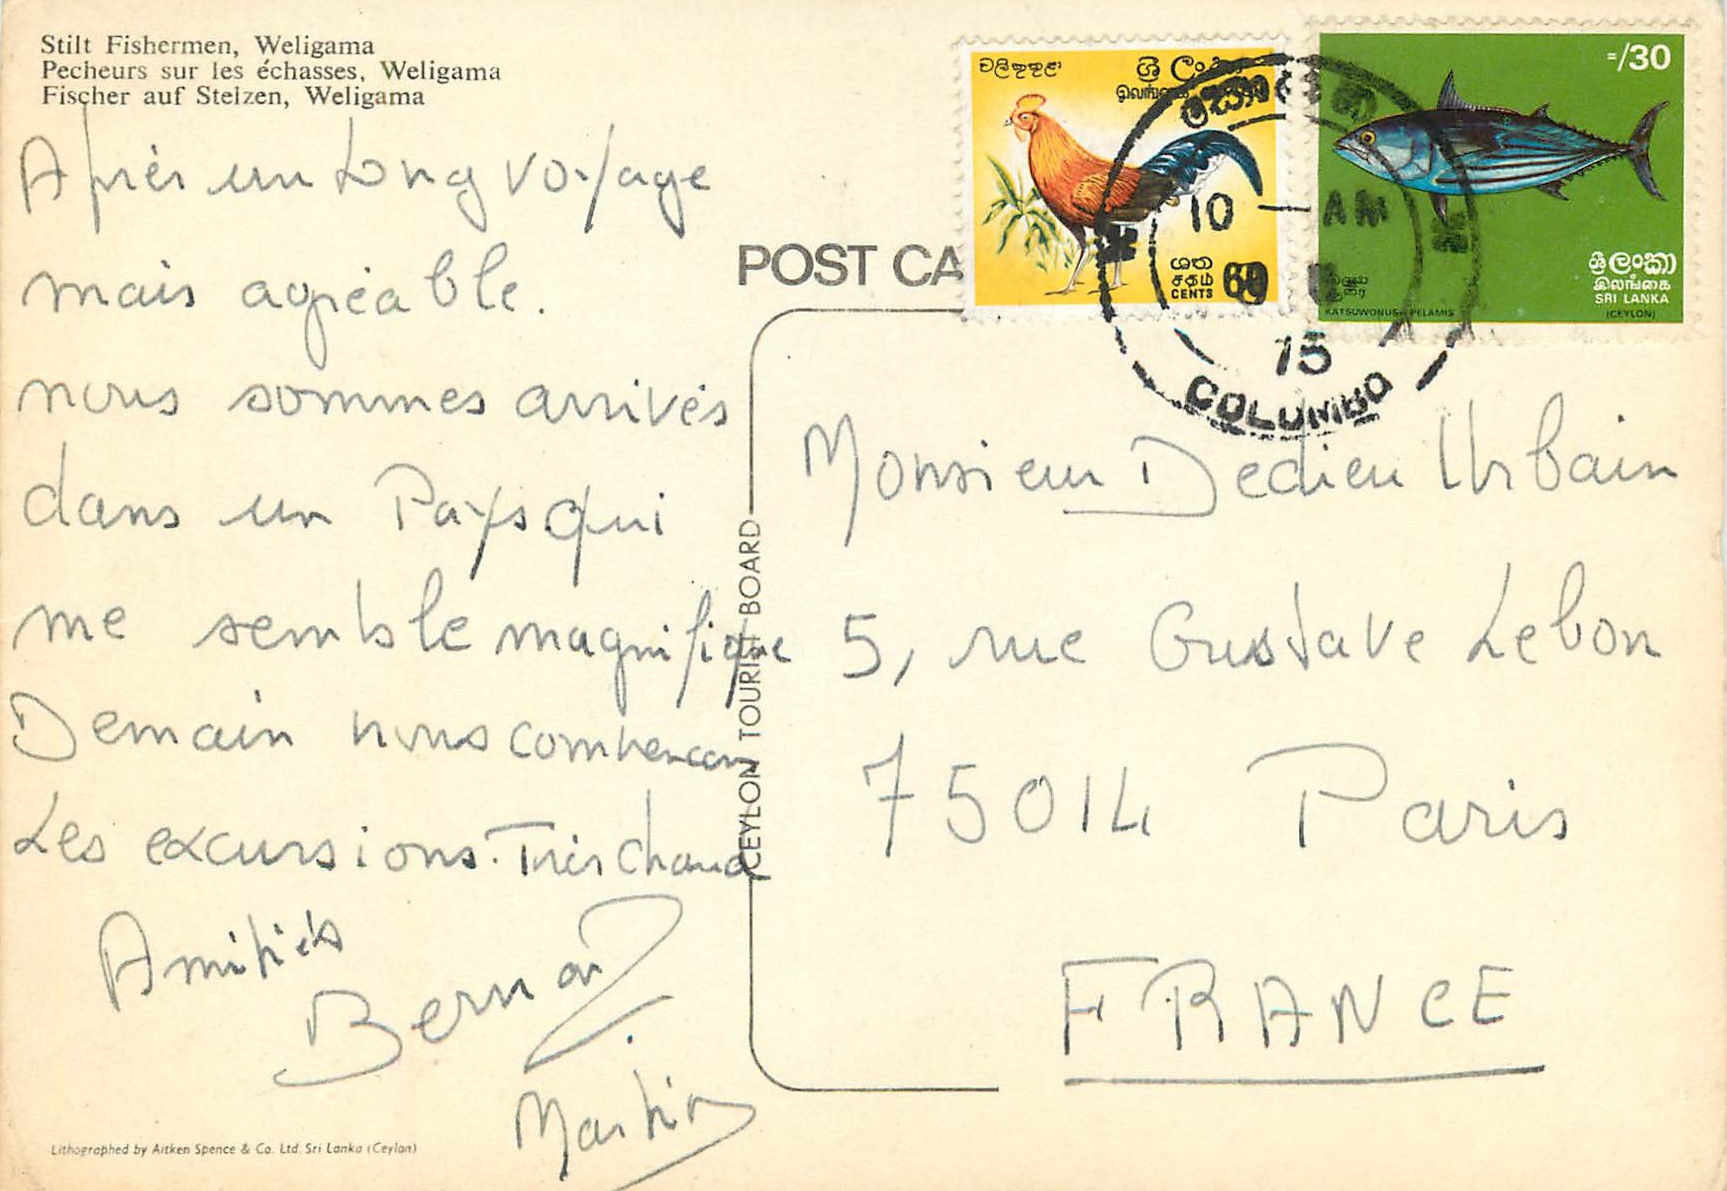 Stilt Fishermen, Weligama
Pecheurs sur les échasses, Weligama
Fischer auf Stelzen, Weligama
Après un Long voyage
mais agréable.
nous sommes arrivés
dans un Pays qui
me semble magnifique
Demain nous commencons
Les excursions. Très Chaud
Amitiés
Bernard
Martin
Lithographed by Aitken Spence & Co. Ltd. Sri Lanka (Ceylon)
POST CA
CEYLON TOURIST BOARD
වළිකුකුළා
ශ්‍රී ලංකා
ශත
சதம்
CENTS 60
=/30
ශ්‍රී ලංකා
இலங்கை
SRI LANKA
(CEYLON)
KATSUWONUS PELAMIS
10
AM
75
COLOMBO
Monsieur Dedieu Urbain
5, rue Gustave Lebon
75014 Paris
FRANCE